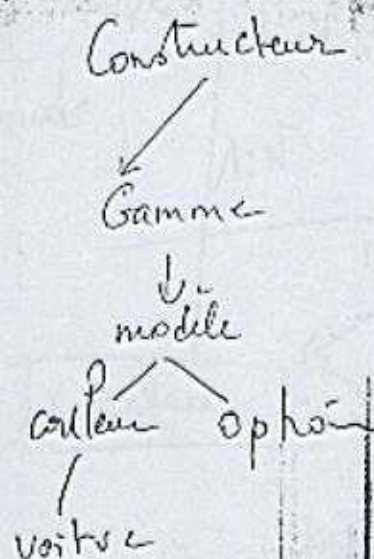 Constructeur
Gamme
modèle
couleur option
voiture